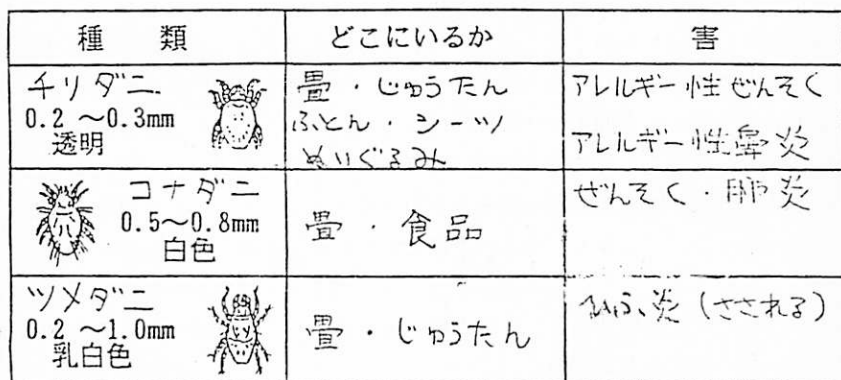 種 類 どこにいるか 害
チリダニ
0.2 ～0.3mm
透明
畳・じゅうたん
ふとん・シーツ
ぬいぐるみ
アレルギー性ぜんそく
アレルギー性鼻炎
コナダニ
0.5～0.8mm
白色
畳・食品
ぜんそく・肺炎
ツメダニ
0.2 ～1.0mm
乳白色
畳・じゅうたん
ひふ炎(さされる)